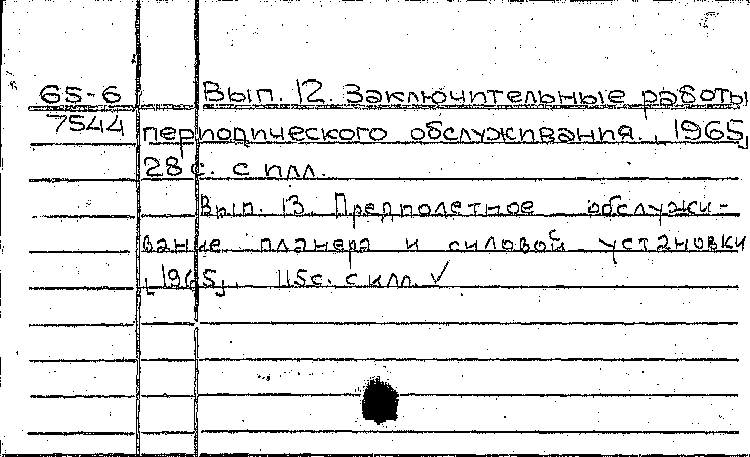 65-6 Вып. 12. Заключительные работы
7544 периодического обслуживания. [1965]
28 с. с илл.
Вып. 13. Предполетное обслужи-
вание планера и силовой установки
[1965]. 115с. с илл. ✓